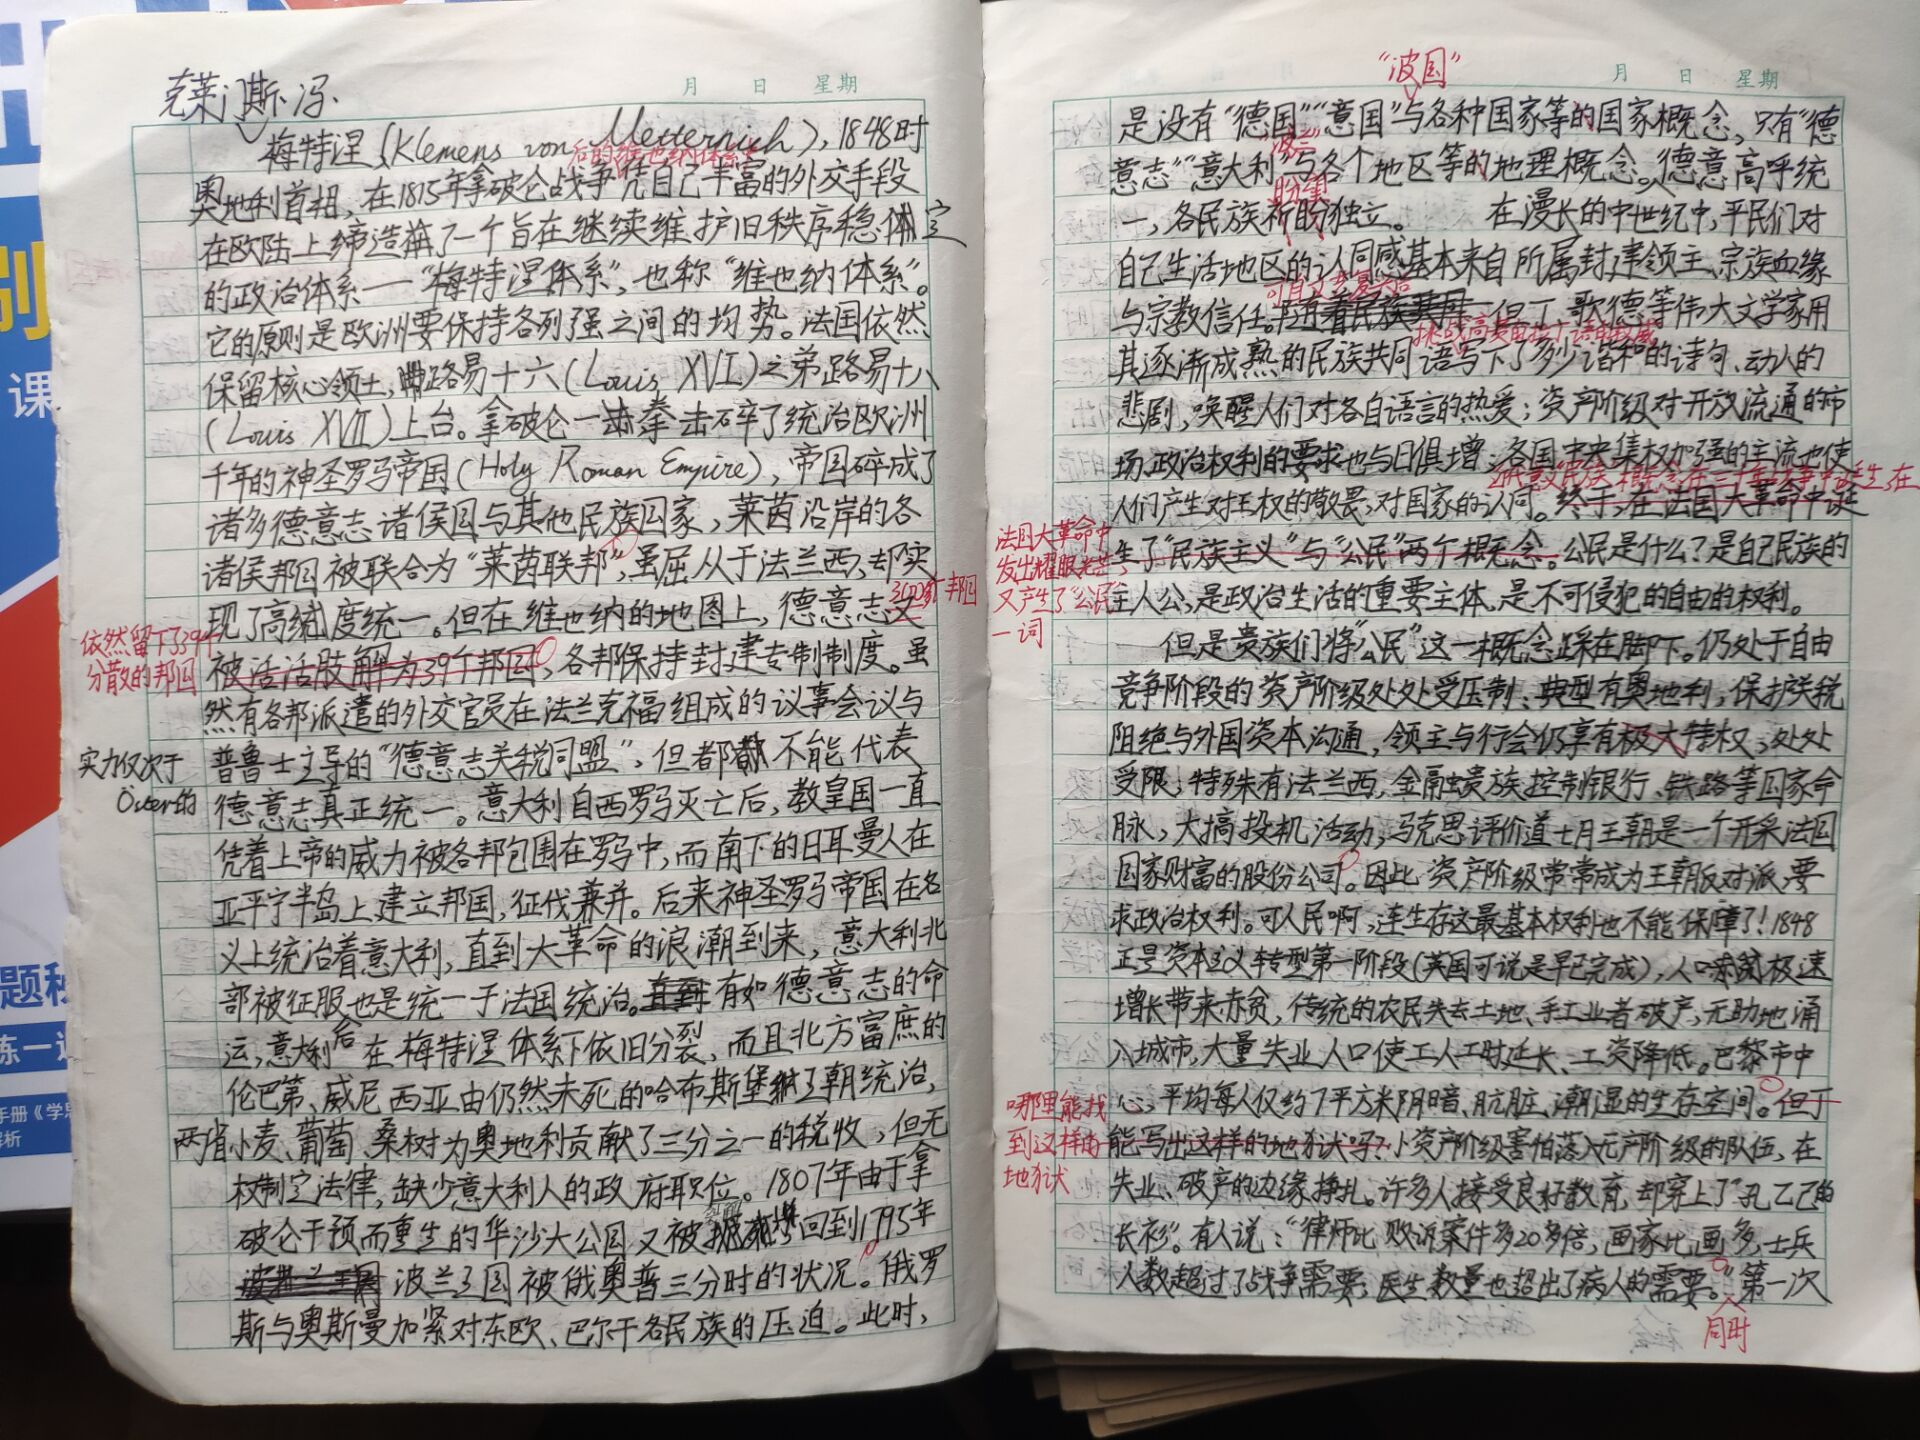 克莱门斯·冯·
月 日 星期
梅特涅(Klemens von Metternich),1848时
后的维也纳体系
奥地利首相,在1815年拿破仑战争凭自己丰富的外交手段
在欧陆上缔造了一个旨在继续维护旧秩序稳定
的政治体系——“梅特涅体系”,也称“维也纳体系”。
它的原则是欧洲要保持各列强之间的均势。法国依然
保留核心领土,路易十六(Louis XVI)之弟路易十八
(Louis XVII)上台。拿破仑一拳击碎了统治欧洲
千年的神圣罗马帝国(Holy Roman Empire),帝国碎成了
诸多德意志诸侯国与其他民族国家,莱茵沿岸的各
诸侯邦国被联合为“莱茵联邦”,虽屈从于法兰西,却实
现了高度统一。但在维也纳的地图上,德意志又
300多个邦国
依然留下了39个
分散的邦国
被活活肢解为39个邦国,各邦保持封建专制制度。虽
然有各邦派遣的外交官员在法兰克福组成的议事会议与
实力仅次于
Öster的
普鲁士主导的“德意志关税同盟”,但都不能代表
德意志真正统一。意大利自西罗马灭亡后,教皇国一直
凭着上帝的威力被各邦包围在罗马中,而南下的日耳曼人在
亚平宁半岛上建立邦国,征伐兼并。后来神圣罗马帝国在名
义上统治着意大利,直到大革命的浪潮到来,意大利北
部被征服也是统一于法国统治。有如德意志的命
运,意大利后在梅特涅体系下依旧分裂,而且北方富庶的
伦巴第、威尼西亚由仍然未死的哈布斯堡王朝统治,
两省小麦、葡萄、桑树为奥地利贡献了三分之一的税收,但无
权制定法律,缺少意大利人的政府职位。1807年由于拿
破仑干预而重生的华沙大公国又被回到1795年
波兰王国被俄奥普三分时的状况。俄罗
斯与奥斯曼加紧对东欧、巴尔干各民族的压迫。此时,
“波国”
月 日 星期
是没有“德国”“意国”与各种国家等的国家概念,只有“德
“波兰”
意志”“意大利”与各个地区等的地理概念。德意高呼统
盼望
一,各民族祈盼独立。 在漫长的中世纪中,平民们对
自己生活地区的认同感基本来自所属封建领主、宗族血缘
可自文艺复兴后
与宗教信任。但丁、歌德等伟大文学家用
挑战高贵的拉丁语的权威
其逐渐成熟的民族共同语写下了多少谐和的诗句、动人的
悲剧,唤醒人们对各自语言的热爱;资产阶级对开放流通的市
场、政治权利的要求也与日俱增;各国中央集权加强的主流也使
人们产生对王权的敬畏,对国家的认同。终于,在法国大革命中诞
法国大革命中
发出耀眼光芒,
又产生了“公民”
一词
生了“民族主义”与“公民”两个概念。公民是什么?是自己民族的
主人公,是政治生活的重要主体,是不可侵犯的自由的权利。
但是贵族们将“公民”这一概念踩在脚下。仍处于自由
竞争阶段的资产阶级处处受压制、典型有奥地利,保护关税
阻绝与外国资本沟通,领主与行会仍享有极大特权,处处
受限;特殊有法兰西,金融贵族控制银行、铁路等国家命
脉,大搞投机活动,马克思评价道七月王朝是一个开采法国
国家财富的股份公司。因此资产阶级常常成为王朝反对派,要
求政治权利。可人民啊,连生存这最基本权利也不能保障了!1848
正是资本主义转型第一阶段(英国可说是早已完成),人口极速
增长带来赤贫,传统的农民失去土地、手工业者破产,无助地涌
入城市,大量失业人口使工人工时延长、工资降低。巴黎市中
心,平均每人仅约7平方米阴暗、肮脏、潮湿的生存空间。但丁
哪里能找
到这样的
地狱
能写出这样的地狱吗?小资产阶级害怕落入无产阶级的队伍,在
失业、破产的边缘挣扎。许多人接受良好教育,却穿上了“孔乙己的
长衫”。有人说:“律师比败诉案件多20多倍,画家比画多,士兵
人数超过了战争需要;医生数量也超出了病人的需要。”第一次
同时